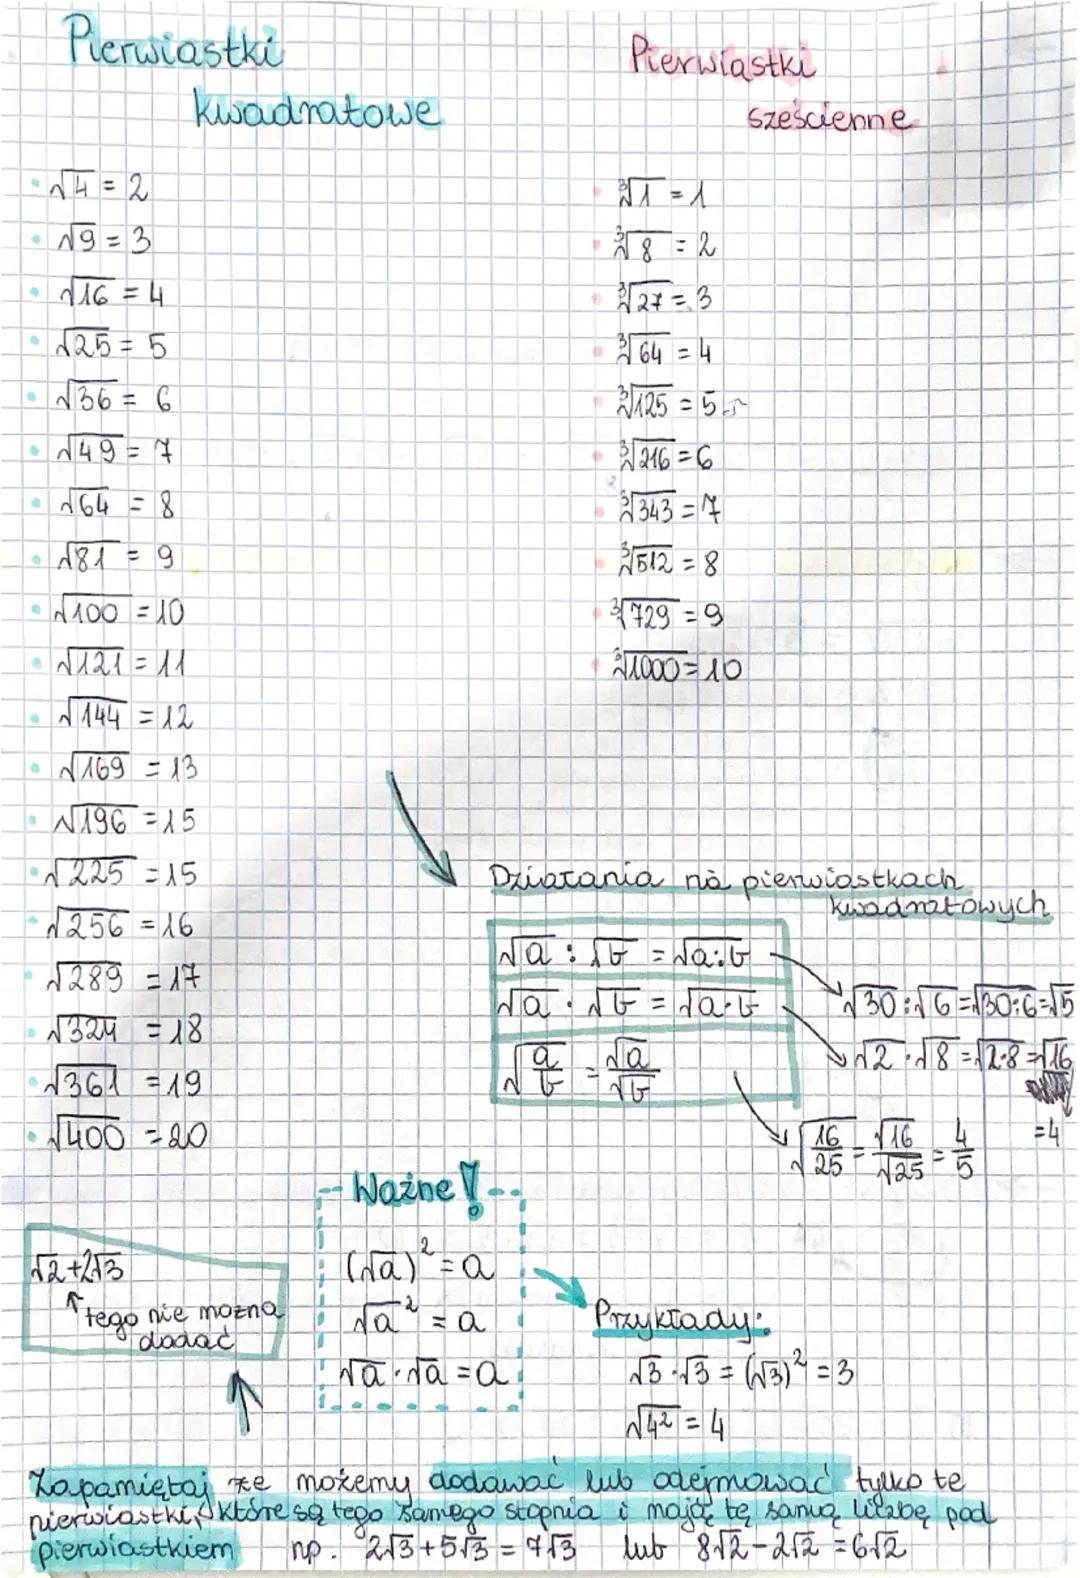 Pierwiastki
kwadratowe
√4 = 2
√9 = 3
√16 = 4
√25 = 5
√36 = 6
√49 = 7
√64 = 8
√81 = 9
√100 = 10
√121 = 11
√144 = 12
√169 = 13
√196 = 15
√225 = 15
√256 = 16
√289 = 17
√324 = 18
√361 = 19
√400 = 20
Pierwiastki
sześcienne
∛1 = 1
∛8 = 2
∛27 = 3
∛64 = 4
∛125 = 5
∛216 = 6
∛343 = 7
∛512 = 8
∛729 = 9
∛1000 = 10
Działania na pierwiastkach
kwadratowych
√a : √b = √a:b
√a · √b = √a·b
√a/b = √a/√b
√30 : √6 = √30:6 = √5
√2 · √8 = √2·8 = √16
= 4
√16/25 = √16/√25 = 4/5
Ważne!
(√a)² = a
√a² = a
√a · √a = a
√2+2√3
↑ tego nie można
dodać
Przykłady:
√3 · √3 = (√3)² = 3
√4² = 4
Zapamiętaj że możemy dodawać lub odejmować tylko te
pierwiastki, które są tego samego stopnia i mają tę samą liczbę pod
pierwiastkiem np. 2√3+5√3 = 7√3 lub 8√2-2√2 = 6√2